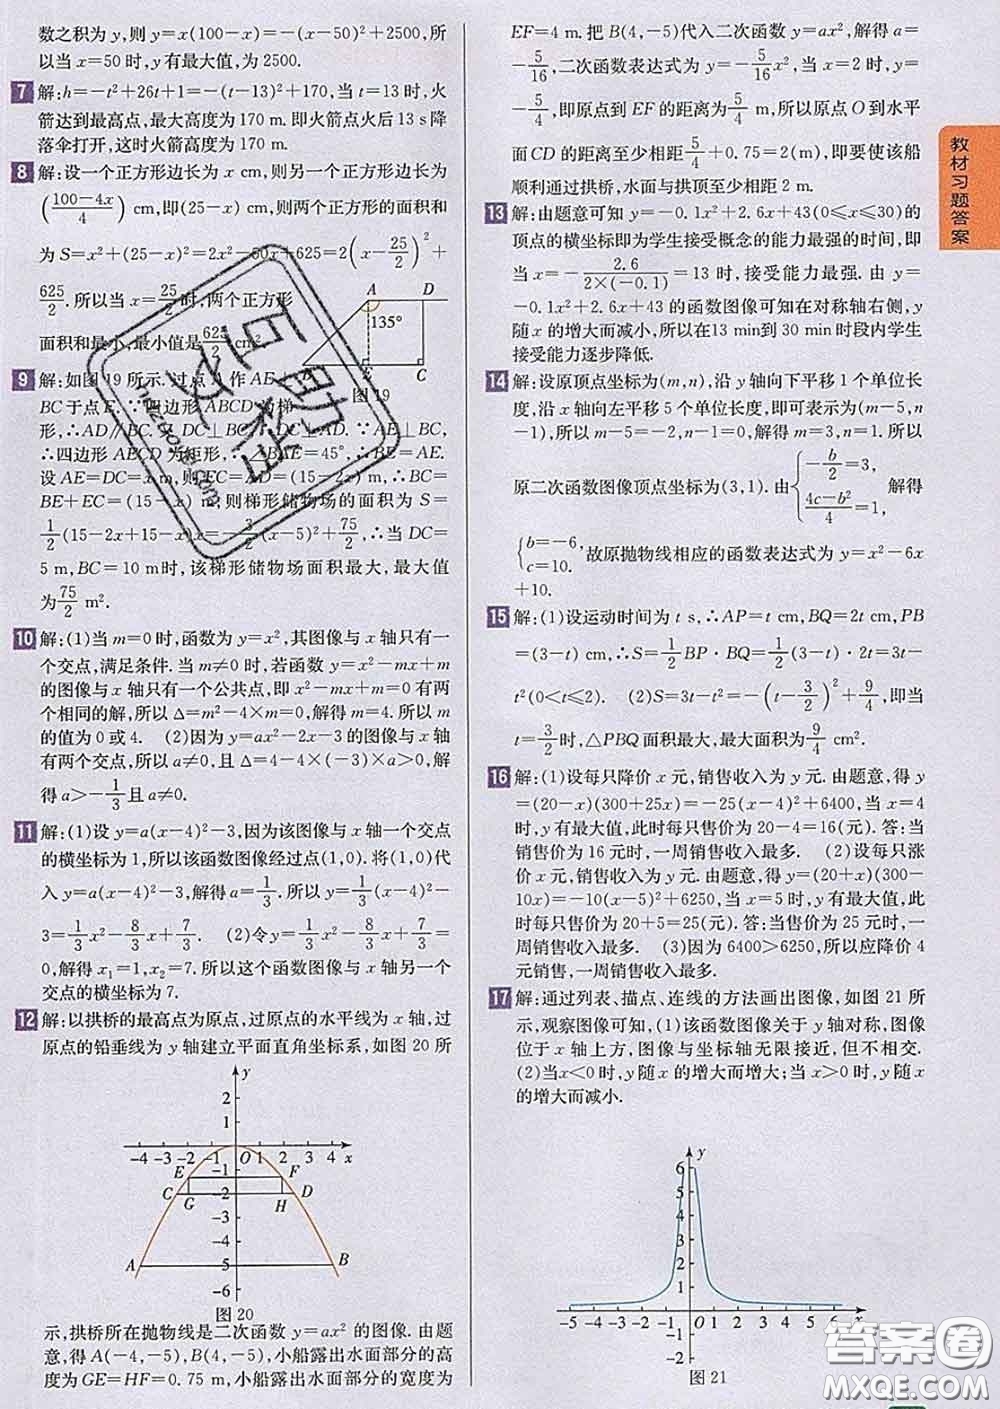 数之积为 y,则 y=x(100-x)=-(x-50)²+2500,所
以当 x=50 时,y 有最大值,为 2500.
7 解:h=-t²+26t+1=-(t-13)²+170,当 t=13 时,火
箭达到最高点,最大高度为 170 m. 即火箭点火后 13 s 降
落伞打开,这时火箭高度为 170 m.
8 解:设一个正方形边长为 x cm,则另一个正方形边长为
((100-4x)/4) cm,即(25-x) cm,则两个正方形的面积和
为 S=x²+(25-x)²=2x²-50x+625=2(x-25/2)²+
625/2. 所以当 x=25/2 时,两个正方形
面积和最小,最小值是 625/2 cm².
A D
135°
E C
图 19
9 解:如图 19 所示. 过点 A 作 AE
BC 于点 E. ∵四边形 ABCD 为梯
形,∴AD∥BC. DC⊥BC,∴DC⊥AD. ∵AE⊥BC,
∴四边形 AECD 为矩形, ∠BAE=45°,∴BE=AE.
设 AE=DC=x m,则 EC=AD=(15-2x) m,∴BC=
BE+EC=(15-x) m,则梯形储物场的面积为 S=
1/2(15-2x+15-x)x=-3/2(x-5)²+75/2,∴当 DC=
5 m,BC=10 m时,该梯形储物场面积最大,最大值
为 75/2 m².
10 解:(1)当 m=0 时,函数为 y=x²,其图像与 x 轴只有一
个交点,满足条件. 当 m≠0 时,若函数 y=x²-mx+m
的图像与 x 轴只有一个公共点,即 x²-mx+m=0 有两
个相同的解,所以 Δ=m²-4×m=0,解得 m=4. 所以 m
的值为 0 或 4. (2)因为 y=ax²-2x-3 的图像与 x 轴
有两个交点,所以 a≠0,且 Δ=4-4×(-3)×a>0,解
得 a>-1/3 且 a≠0.
11 解:(1)设 y=a(x-4)²-3,因为该图像与 x 轴一个交点
的横坐标为 1,所以该函数图像经过点(1,0). 将(1,0)代
入 y=a(x-4)²-3,解得 a=1/3. 所以 y=1/3(x-4)²-
3=1/3x²-8/3x+7/3. (2)令 y=1/3x²-8/3x+7/3=
0,解得 x₁=1,x₂=7. 所以这个函数图像与 x 轴另一个
交点的横坐标为 7.
12 解:以拱桥的最高点为原点,过原点的水平线为 x 轴,过
原点的铅垂线为 y 轴建立平面直角坐标系,如图 20 所
y
2
1
-4 -3 -2 -1 O 1 2 3 4 x
E -1 F
C G -2 H D
-3
-4
A -5 B
-6
图 20
示,拱桥所在抛物线是二次函数 y=ax² 的图像. 由题
意,得 A(-4,-5),B(4,-5),小船露出水面部分的高
度为 GE=HF=0.75 m,小船露出水面部分的宽度为
EF=4 m. 把 B(4,-5)代入二次函数 y=ax²,解得 a=
-5/16,二次函数表达式为 y=-5/16x²,当 x=2 时,y=
-5/4,即原点到 EF 的距离为 5/4 m,所以原点 O 到水平
面 CD 的距离至少相距 5/4+0.75=2(m),即要使该船
顺利通过拱桥,水面与拱顶至少相距 2 m.
13 解:由题意可知 y=-0.1x²+2.6x+43(0≤x≤30)的
顶点的横坐标即为学生接受概念的能力最强的时间,即
当 x=-2.6/(2×(-0.1))=13 时,接受能力最强. 由 y=
-0.1x²+2.6x+43 的函数图像可知在对称轴右侧,y
随 x 的增大而减小,所以在13 min到 30 min 时段内学生
接受能力逐步降低.
14 解:设原顶点坐标为(m,n),沿 y 轴向下平移 1 个单位长
度,沿 x 轴向左平移 5 个单位长度,即可表示为(m-5,n
-1),所以 m-5=-2,n-1=0,解得 m=3,n=1. 所以
原二次函数图像顶点坐标为(3,1). 由{-b/2=3, (4c-b²)/4=1, 解得
{b=-6, c=10. 故原抛物线相应的函数表达式为 y=x²-6x
+10.
15 解:(1)设运动时间为 t s,∴AP=t cm,BQ=2t cm,PB
=(3-t) cm,∴S=1/2BP·BQ=1/2(3-t)·2t=3t-
t²(0<t≤2). (2)S=3t-t²=-(t-3/2)²+9/4,即当
t=3/2时,△PBQ 面积最大,最大面积为 9/4 cm².
16 解:(1)设每只降价 x 元,销售收入为 y 元. 由题意,得 y
=(20-x)(300+25x)=-25(x-4)²+6400,当 x=4
时,y 有最大值,此时每只售价为 20-4=16(元). 答:当
销售价为 16 元时,一周销售收入最多. (2)设每只涨
价 x 元,销售收入为 y 元. 由题意,得 y=(20+x)(300-
10x)=-10(x-5)²+6250,当 x=5 时,y 有最大值,此
时每只售价为 20+5=25(元). 答:当售价为 25 元时,一
周销售收入最多. (3)因为 6400>6250,所以应降价 4
元销售,一周销售收入最多.
17 解:通过列表、描点、连线的方法画出图像,如图 21 所
示,观察图像可知,(1)该函数图像关于 y 轴对称,图像
位于 x 轴上方,图像与坐标轴无限接近,但不相交.
(2)当 x<0 时,y 随 x 的增大而增大;当 x>0 时,y 随 x
的增大而减小.
y
6
5
4
3
2
1
-5 -4 -3 -2 -1 O 1 2 3 4 5 6 x
-1
-2
图 21
教材习题答案
答案圈
MXQE.COM